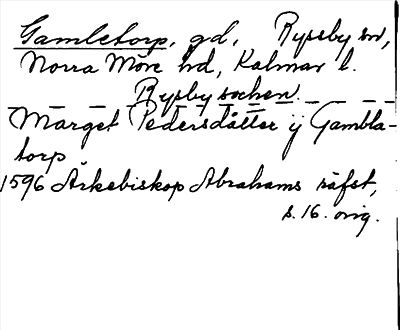 Gamletorp, gd, Ryssby sn,
Norra Möre hd, Kalmar l.
Rysby sochen.
Marget Pedersdåtter ij Gambla-
torp
1596 Ärkebiskop Abrahams räfst,
s. 16. orig.